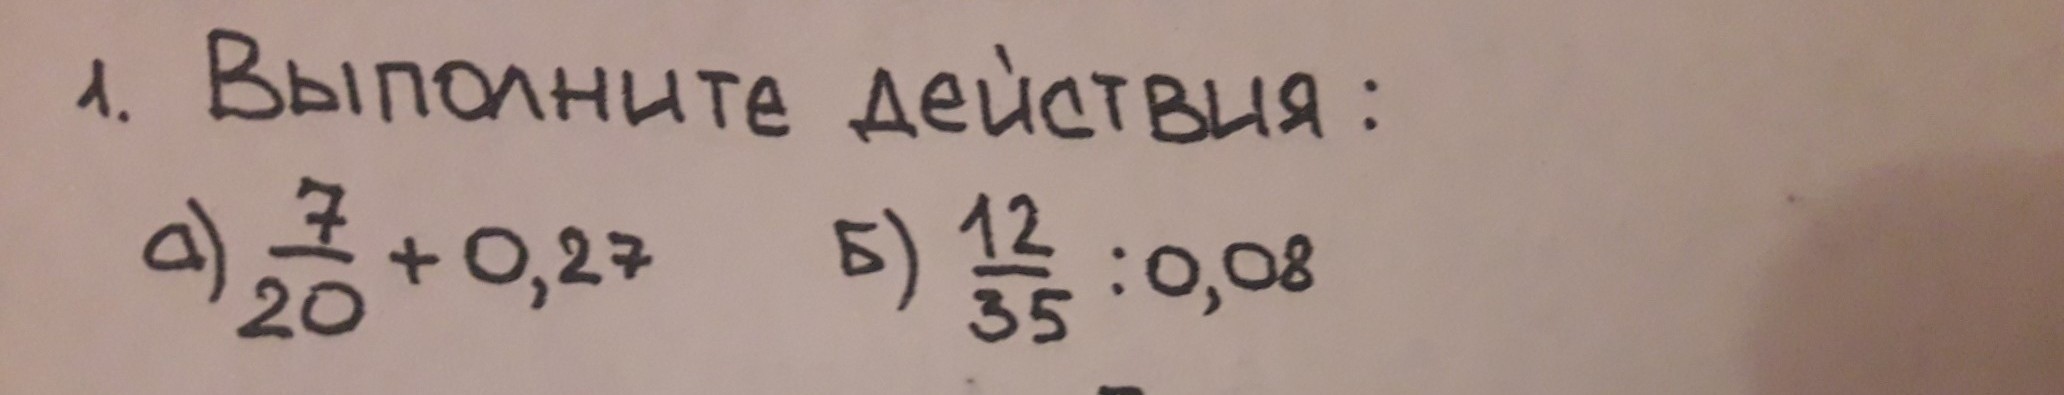 1. Выполните действия:
а) 7/20 + 0,27 Б) 12/35 : 0,08